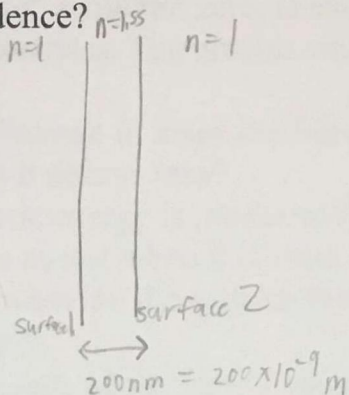 dence?
n=1 n=1.55 n=1
surface 1 surface 2
200nm = 200×10⁻⁹ m